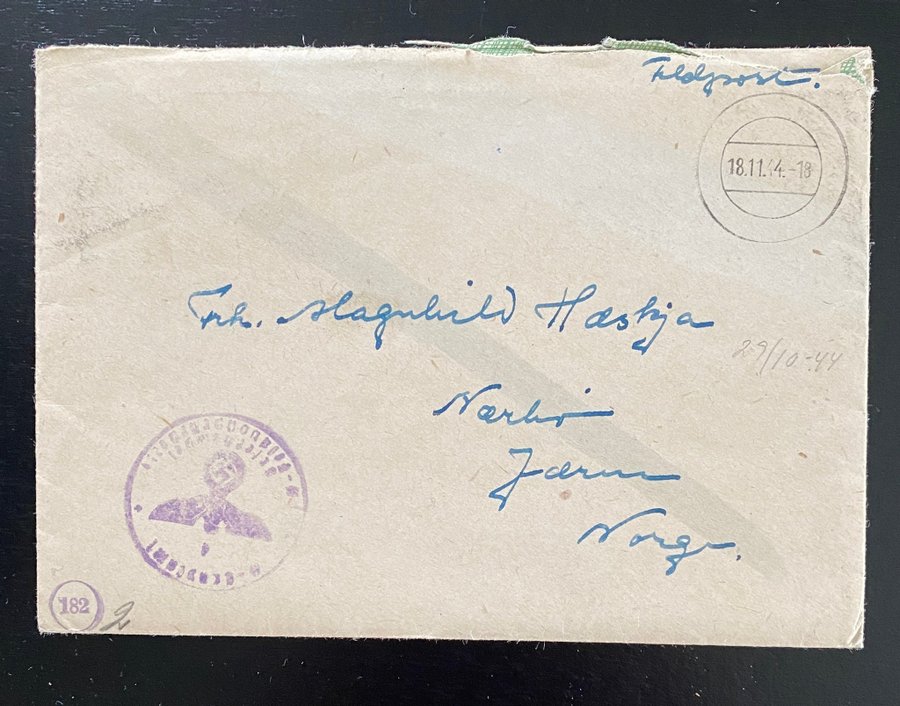 Feldpost.
18.11.44.-18
Frk. Magnhild Hæskja
29/10-44
Nærbø
Jæren
Norge.
182
2